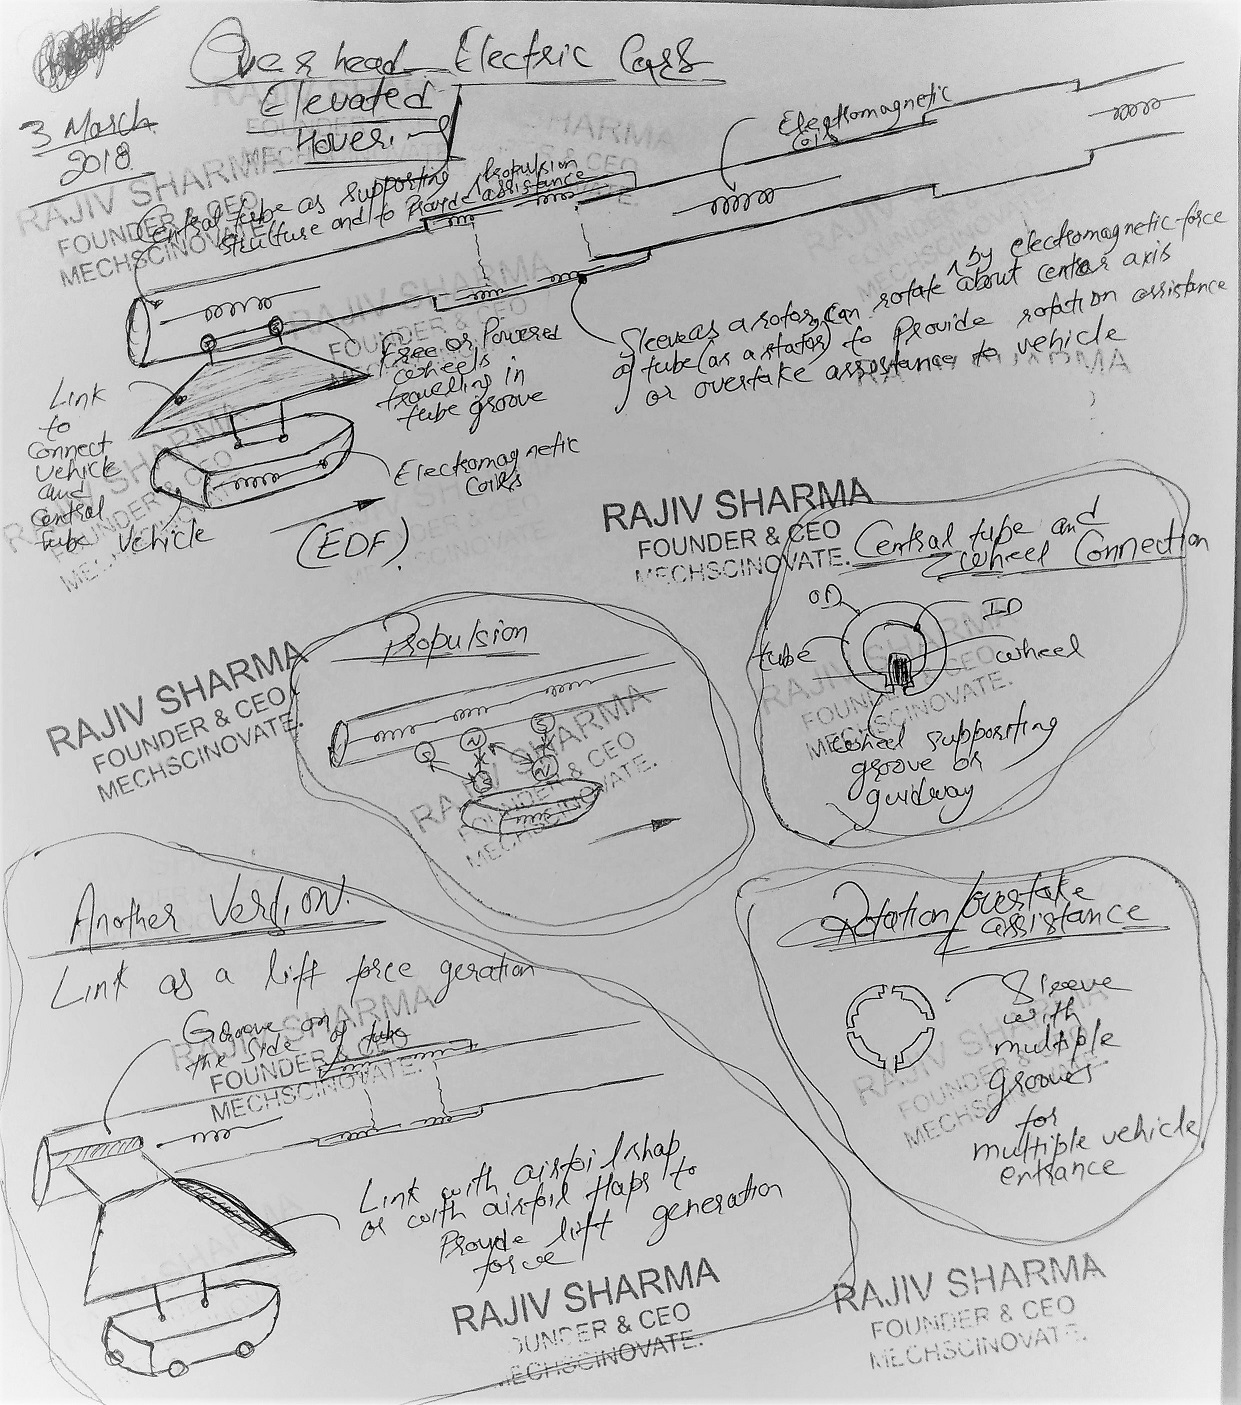 Overhead Electric Cars
Elevated
Hover.
3 March
2018
RAJIV SHARMA
FOUNDER & CEO
MECHSCINOVATE.
Central tube as supporting
structure and to Provide Propulsion
assistance
Electromagnetic
coils
Sleeve as a rotor, can rotate by electromagnetic force
about center axis
of tube (as a stator) to Provide rotation assistance
or overtake assistance to vehicle
Free or Powered
wheels
travelling in
tube groove
Link
to
connect
vehicle
and
central
tube
Vehicle
Electromagnetic
coils
(EDF)
RAJIV SHARMA
FOUNDER & CEO
MECHSCINOVATE.
Central tube and
wheel Connection
OD
ID
tube
wheel
wheel supporting
groove or
guidway
Propulsion
S
N
S
S
N
RAJIV SHARMA
FOUNDER & CEO
MECHSCINOVATE.
RAJIV SHARMA
FOUNDER & CEO
MECHSCINOVATE.
Another Version.
Link as a lift force geration
Groove on
the side of tube
RAJIV SHARMA
FOUNDER & CEO
MECHSCINOVATE.
Link with airfoil shap
or with airfoil flaps to
Provide lift generation
force
Rotation/overtake
assistance
Sleeve
with
multiple
grooves
for
multiple vehicle
entrance
RAJIV SHARMA
FOUNDER & CEO
MECHSCINOVATE.
RAJIV SHARMA
OUNDER & CEO
ECHSCINOVATE.
RAJIV SHARMA
FOUNDER & CEO
MECHSCINOVATE.